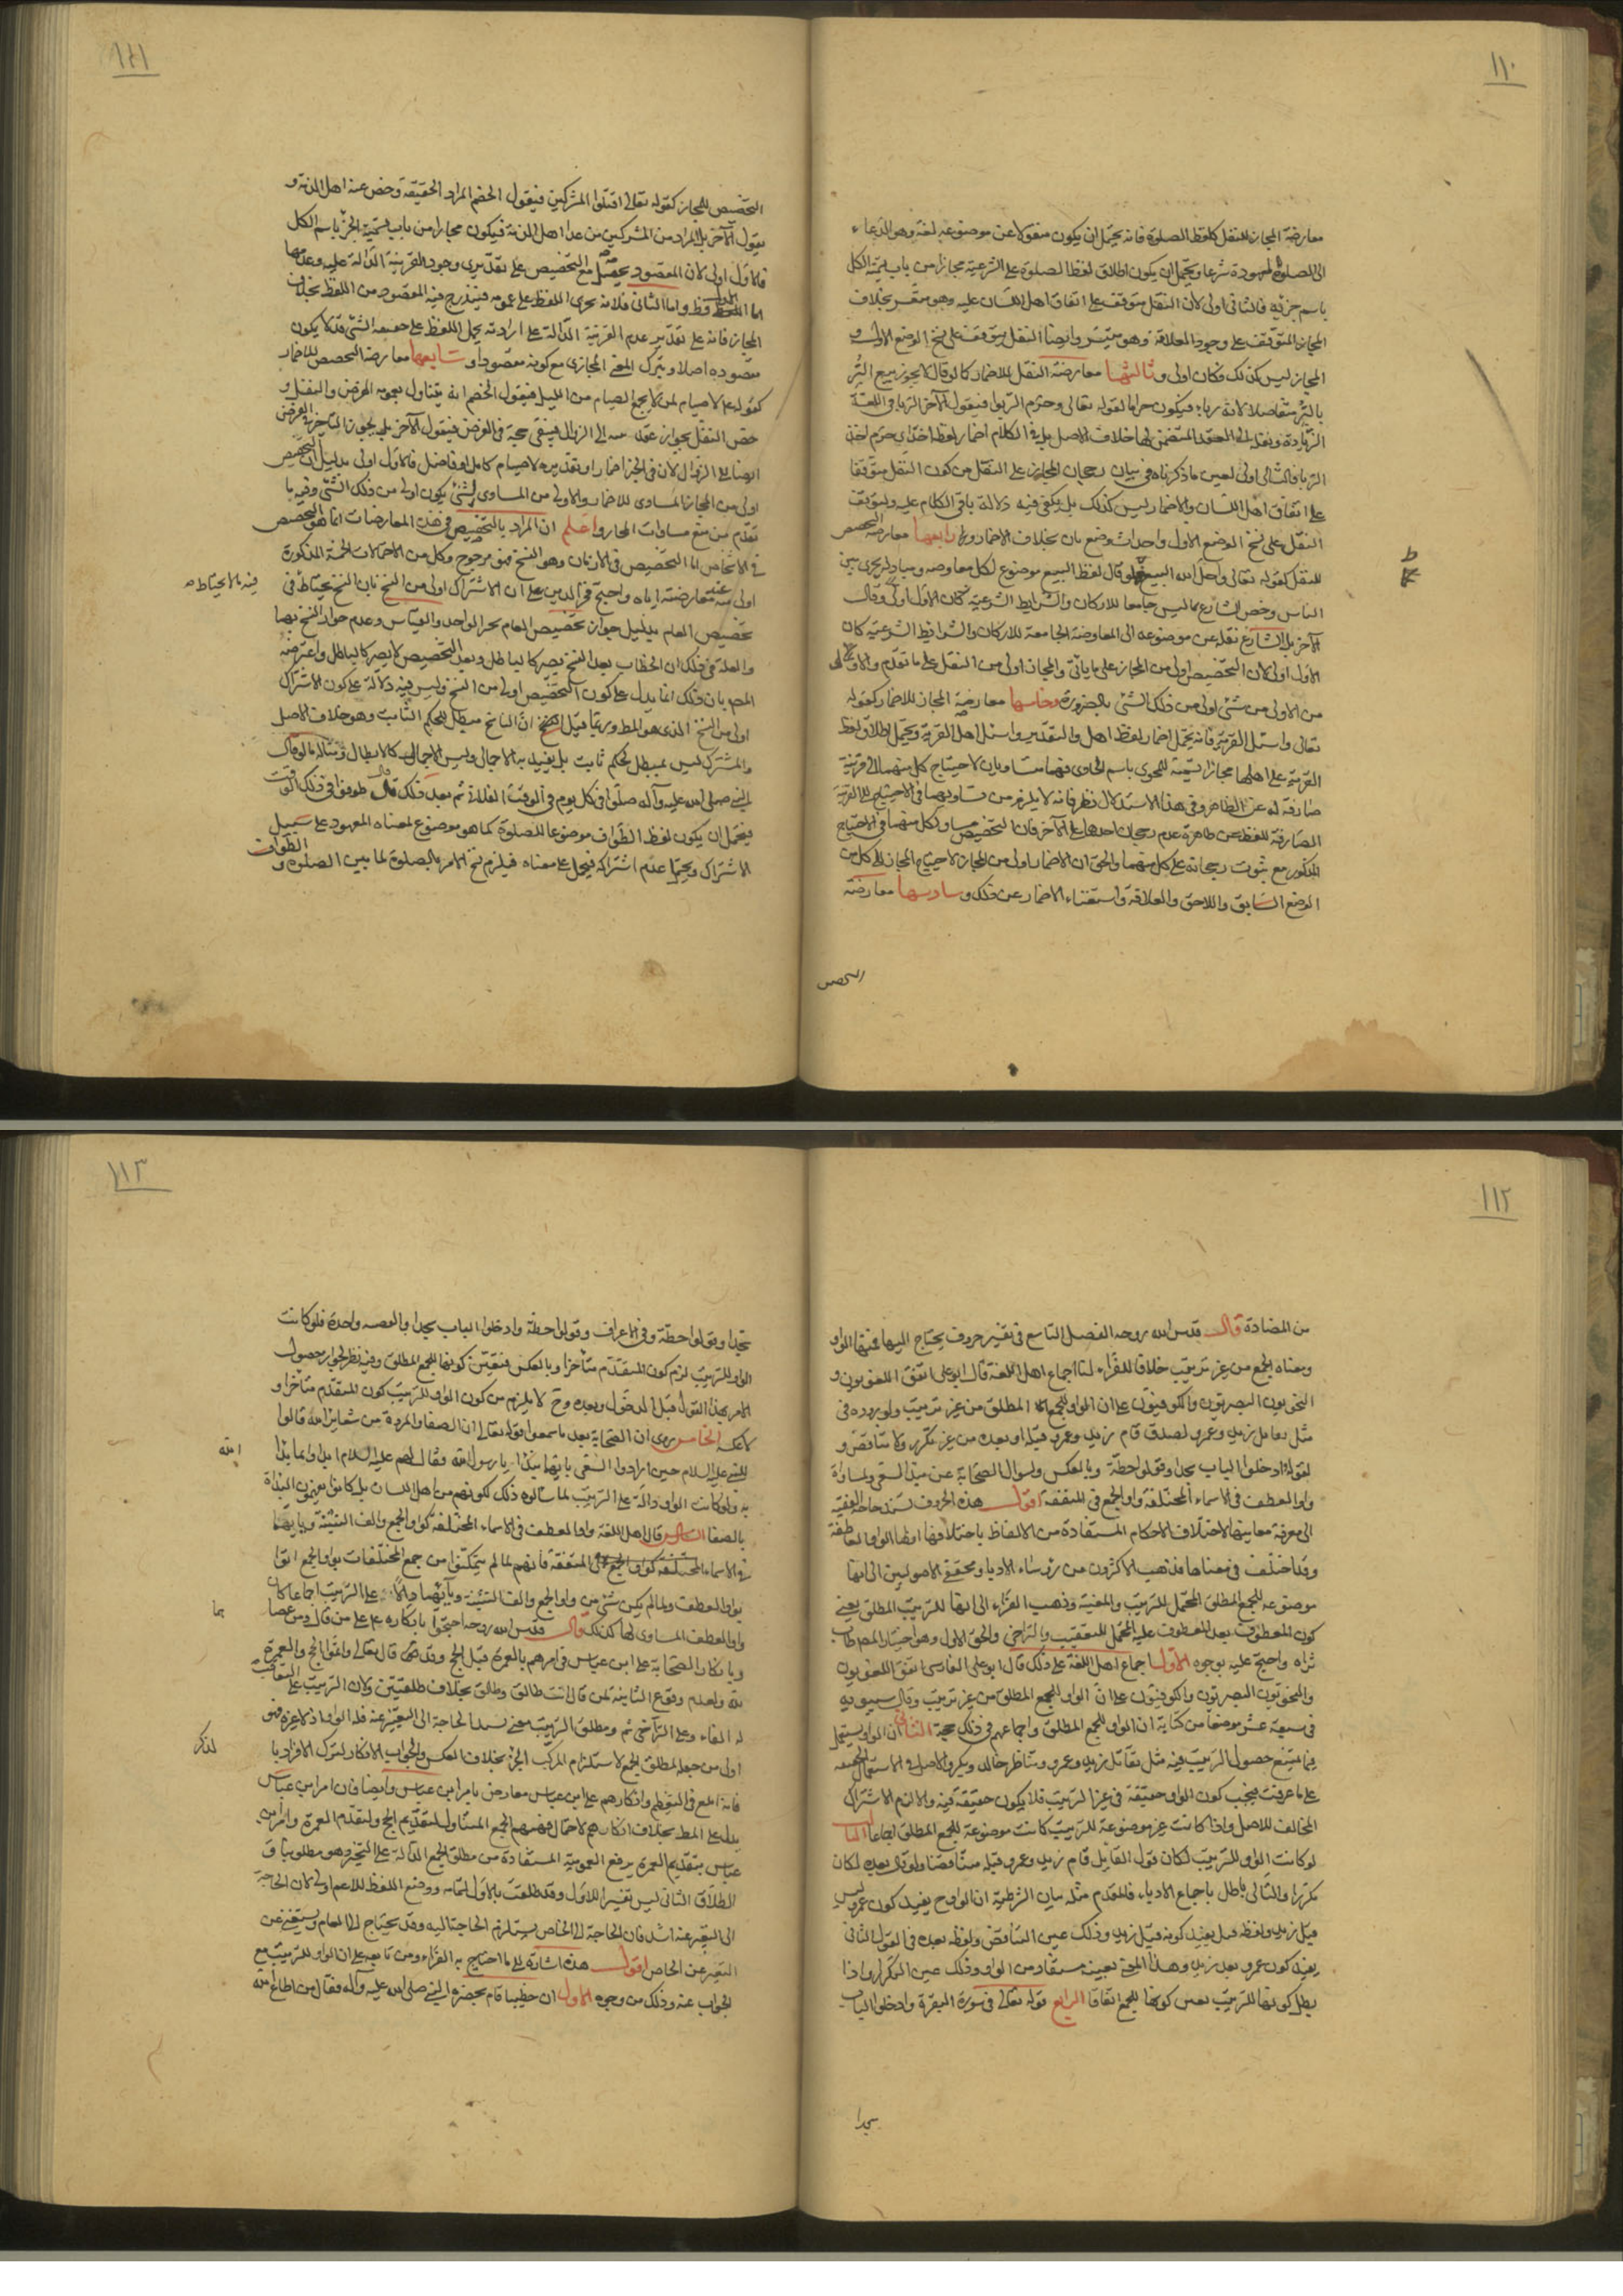 ١١٠
معارضة المجاز للنقل كلفظ الصلوة فانه يحتمل ان يكون منقولا عن موضوعه لغة وهو الدعاء
الى الصلوة المعهودة شرعا ويحتمل ان يكون اطلاق لفظ الصلوة على الشرعية مجازا من باب تسمية الكل
باسم جزئه فالثانى اولى لان النقل متوقف على اتفاق اهل اللسان عليه وهو متعسر بخلاف
المجاز المتوقف على وجود العلاقة وهو متيسر وايضا النقل يتوقف على نسخ الوضع الاول و
المجاز ليس كذلك فكان اولى وثالثها معارضة النقل للاضمار كما لو قال لا يجوز بيع البُر
بالبُر متفاضلا لانه ربا فيكون حراما لقوله تعالى وحرّم الربوا فيقول الآخر الربا فى اللغة
الزيادة ونقله الى العقد المتضمن لها خلاف الاصل بل فى الكلام اضمار لفظ اخذ اى حرم اخذ
الربا فالثانى اولى لعين ما ذكرناه فى بيان رجحان المجاز على النقل من كون النقل متوقفا
على اتفاق اهل اللسان والاضمار ليس كذلك بل يكفى فيه دلالة باقى الكلام عليه ويتوقف
النقل على نسخ الوضع الاول واحداث وضع ثان بخلاف الاضمار ورابعها معارضة التخصيص
للنقل كقوله تعالى واحل الله البيع فلو قال لفظ البيع موضوع لكل معاوضة ومبادلة يجرى بين
الناس وخص الشارع ما ليس جامعا للاركان والشرايط الشرعية كان الاول اولى وقال
الآخر بل الشارع نقله عن موضوعه الى المعاوضة الجامعة للاركان والشرائط الشرعية كان
الاول اولى لان التخصيص اولى من المجاز على ما يأتى والمجاز اولى من النقل على ما تقدم والاولى
من الاولى من شئ اولى من ذلك الشئ بالضرورة وخامسها معارضة المجاز للاضمار كقوله
تعالى واسئل القرية فانه يحتمل اضمار لفظ اهل والتقدير واسئل اهل القرية ويحتمل اطلاق لفظ
القرية على اهلها مجازا تسمية للمحوى باسم الحاوى فهما متساويان لاحتياج كل منهما الى قرينة
صارفة له عن الظاهر وفى هذا الاستدلال نظر فانه لا يلزم من تساويهما فى الاحتياج الى القرينة
الصارفة للفظ عن ظاهره عدم رجحان احدهما على الآخر فان التخصيص مساو لكل منهما فى الاحتياج
المذكور مع ثبوت رجحانه على كل منهما والحق ان الاضمار اولى من المجاز لاحتياج المجاز الى كل من
الوضع السابق واللاحق والعلاقة واستغناء الاضمار عن ذلك وسادسها معارضة
التخصيص
١١١
التخصيص للمجاز كقوله تعالى اقتلوا المشركين فيقول الخصم المراد الحقيقة وخص عنه اهل الذمة و
يقول الآخر بل المراد من المشركين من عدا اهل الذمة فيكون مجازا من باب تسمية الجزء باسم الكل
فالاول اولى لان المقصود يحصل مع التخصيص على تقديرى وجود القرينة الدالة عليه وعدمها
اما الاول فظ واما الثانى فلانه يجرى اللفظ على عمومه فيندرج فيه المقصود من اللفظ بخلاف
المجاز فانه على تقدير عدم القرينة الدالة على ارادته يحمل اللفظ على حقيقة الشئ فلا يكون
مقصودة اصلا ويترك المعنى المجازى مع كونه مقصودا وسابعها معارضة التخصيص للاضمار
كقوله ع لا صيام لمن لا يجمع الصيام من الليل فيقول الخصم انه يتناول بعمومه الفرض والنفل و
خص النفل بجواز عقد نيته الى الزوال فيبقى حجة فى الفرض فيقول الآخر بل يجوز التأخير فى الفرض
ايضا الى الزوال لان فى الخبر اضمارا وتقديره لا صيام كامل او فاضل فالاول اولى بدليل ان التخصيص
اولى من المجاز المساوى للاضمار والاولى من المساوى لشئ يكون اولى من ذلك الشئ وفيه ما
تقدم من منع مساوات المجاز واعلم ان المراد بالتخصيص فى هذه المعارضات انما هو التخصيص
فى الاشخاص اما التخصيص فى الازمان وهو النسخ فهو مرجوح وكل من الاحتمالات الخمسة المذكورة
اولى منه عند معارضته اياه واحتج فخر الدين على ان الاشتراك اولى من النسخ بان النسخ يحتاط فى
فيه ما لا يحتاط ص
تخصيص العام بدليل جواز تخصيص العام بخبر الواحد والقياس وعدم جواز النسخ بهما
والعلة فى ذلك ان الخطاب بعد النسخ يصير كالباطل وبعد التخصيص لا يصير كالباطل واعترضه
المص بان ذلك انما يدل على كون التخصيص اولى من النسخ وليس فيه دلالة على كون الاشتراك
اولى من النسخ الذى هو المط وربما قيل ان الناسخ مبطل للحكم الثابت وهو خلاف الاصل
والمشترك ليس بمبطل لحكم ثابت بل يفيد به الاجمال وليس الاجمال كالابطال ومثاله ما لو قال
النبى صلى الله عليه وآله صلّوا فى كل يوم فى الوقت الفلانى ثم بعد ذلك قال طوفوا فى ذلك الوقت
فيحتمل ان يكون لفظ الطواف موضوعا للصلوة كما هو موضوع لمعناه المعهود على سبيل
الاشتراك ويحتمل عدم اشتراكه فيحمل على معناه فيلزم نسخ الامر بالصلوة لما بين الصلوة و الطواف
١١٢
من المضادة قال قدس الله روحه الفصل التاسع فى تفسير حروف يحتاج اليها فمنها الواو
ومعناه الجمع من غير ترتيب خلافا للفراء لنا اجماع اهل اللغة قال ابو على اتفق اللغويون و
النحويون البصريون والكوفيون على ان الواو للجمع المطلق من غير ترتيب ولوروده فى
مثل تقاتل زيد وعمرو ولصدق قام زيد وعمرو قبله او بعده من غير تكرر ولا تناقض و
لقوله ادخلوا الباب سجدا وقولوا حطة وبالعكس ولسؤال الصحابة عن مبدأ السعى ولمساواة
واو العطف فى الاسماء المختلفة واو الجمع فى المتفقة اقول هذه الحروف تشتد حاجة الفقيه
الى معرفة معانيها لاختلاف الاحكام المستفادة من الالفاظ باختلافها اولها الواو العاطفة
وقد اختلف فى معناها فذهب الاكثرون من رؤساء الادبا ومحققى الاصوليين الى انها
موضوعه للجمع المطلق المحتمل للترتيب والمعية وذهب الفراء الى انها للترتيب المطلق يعنى
كون المعطوف بعد المعطوف عليه المحتمل للتعقيب والتراخى والحق الاول وهو اختيار المص طاب
ثراه واحتج عليه بوجوه الاول اجماع اهل اللغة على ذلك قال ابو على الفارسى اتفق اللغويون
والنحويون البصريون والكوفيون على ان الواو للجمع المطلق من غير ترتيب وقال سيبويه
فى سبعة عشر موضعا من كتابه ان الواو للجمع المطلق واجماعهم فى ذلك حجة الثانى ان الواو يستعمل
فيما يمتنع حصول الترتيب فيه مثل تقاتل زيد وعمرو وتناظر خالد وبكر والاصل فى الاستعمال الحقيقة
على ما عرفت فيجب كون الواو حقيقة فى غير الترتيب فلا يكون حقيقة فيه والا لزم الاشتراك
المخالف للاصل واذا كانت غير موضوعة للترتيب كانت موضوعة للجمع المطلق اجماعا الثالث
لو كانت الواو للترتيب لكان قول القايل قام زيد وعمرو قبله متناقضا ولو قال بعده لكان
مكررا والتالى باطل باجماع الادباء فالمقدم مثله بيان الشرطية ان الواو ح يفيد كون عمرو ليس
قبل زيد ولفظة قبل يفيد كونه قبل زيد وذلك عين التناقض ولفظه بعده فى القول الثانى
يفيد كون عمرو بعد زيد وهذا المعنى بعينه مستفاد من الواو وذلك عين التكرار واذا
بطل كونها للترتيب تعين كونها للجمع اتفاقا الرابع قوله تعالى فى سورة البقرة وادخلوا الباب
سجدا
١١٣
سجدا وقولوا حطة وفى الاعراف وقولوا حطة وادخلوا الباب سجدا والقصه واحدة فلو كانت
الواو للترتيب لزم كون المتقدم متأخرا وبالعكس فتعين كونها للجمع المطلق وفيه نظر لجواز حصول
الامر بهذا القول قبل الدخول وبعده وح لا يلزم من كون الواو للترتيب كون المتقدم متأخرا و
لا عكسه الخامس روى ان الصحابة بعد ما سمعوا قوله تعالى ان الصفا والمروة من شعائر الله قالوا
للنبى عليه السلام حين ارادوا السعى بايهما نبدأ يا رسول الله فقال لهم عليه السلام ابدأوا بما بدأ
الله
به ولو كانت الواو دالة على الترتيب لما سألوه ذلك لكونهم من اهل اللسان بل كانوا يفهمون البدأة
بالصفا السادس قال اهل اللغة واو العطف فى الاسماء المختلفة كواو الجمع والف التثنية
فى الاسماء المتفقة فانهم لما لم يتمكنوا من جمع المختلفات بواو الجمع اتوا
بواو العطف ولما لم يكن شئ من واو الجمع والف التثنية دالا على الترتيب اجماعا كان
واو العطف المساوى لها كذلك قال قدس الله روحه احتجوا بانكاره ع على من قال ومن عصاهما
وبانكار الصحابة على ابن عباس فى امرهم بالعمرة قبل الحج وقد قال تعالى واتموا الحج والعمرة
لله ولعدم وقوع الثانية لمن قال انت طالق وطالق بخلاف طلقتين ولان الترتيب على التعقيب
له الفاء وعلى التراخى ثم ومطلق الترتيب معنى تشتد الحاجة الى التعبير عنه فله الواو اذ لا غيره فهو
اولى من جعله لمطلق الجمع لاستلزام المركب الجزء بخلاف العكس والجواب الانكار لترك الافراد با
لذكر
فانه ابلغ فى التعظيم وانكارهم على ابن عباس معارض بامر ابن عباس وايضا فان امر ابن عباس
يدل على المط بخلاف انكارهم لاحتمال فهمهم الجمع المتناول لتقديم الحج ولتقدم العمرة وامر ابن
عباس بتقديم العمرة يرفع العمومية المستفادة من مطلق الجمع الدالة على التخيير وهو مطلوبنا و
الطلاق الثانى ليس تفسيرا للاول وقد طلقت بالاول لتمامه ووضع اللفظ للاعم اولى لان الحاجة
الى التعبير عنه اشد فان الحاجة الى الخاص يستلزم الحاجة اليه وقد يحتاج الى العام ويستغنى عن
التعبير عن الخاص اقول هذه اشارة الى ما احتاج به الفراء ومن تابعه على ان الواو للترتيب مع
الجواب عنه وذلك من وجوه الاول ان خطيبا قام بحضرة النبى صلى الله عليه وآله فقال من اطاع الله